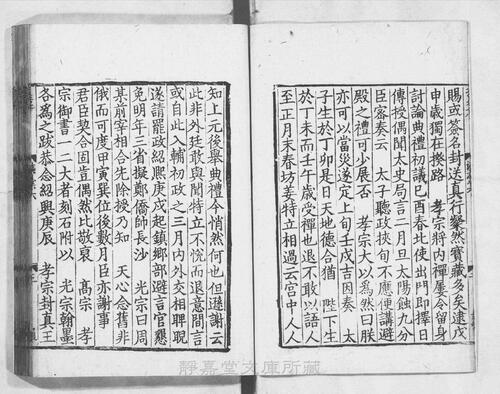 賜或簽名封送真行燦然寶藏多矣逮戊
申歲獨在揆路　孝宗將内禪屢令留身
討論典禮初議已酉春北使出門即擇日
傳授偶聞太史局言二月旦太陽蝕九分
臣密奏云　太子聽政挾旬不應便講避
殿之禮可少展否　孝宗大以爲然曰朕
亦可以當災遂定上旬壬戌吉因奏　太
子生於丁卯是日天地德合猶　陛下生
於丁未而壬午歲受禪也退不敢以語人
至正月末春坊姜特立相過云宫中人人
知上元後舉典禮今悄然何也但遜謝云
此非外廷敢與聞特立不恱而退意間言
或自此入輔初政之三月内外交相聸覗
遂請罷政紹熈庚戌起鎮鄉部避言官懇
免明年三省擬鄭僑帥長沙　光宗曰周
某前宰相合先除授乃知　天心念舊非
俄而可度甲寅巽位後數月臣亦謝事
君臣契合固豈偶然比敬裒　髙宗　孝
宗御書一二大者刻石附以　光宗翰墨
各爲之跋恭念紹興庚辰　孝宗封真王
靜嘉堂文庫所藏